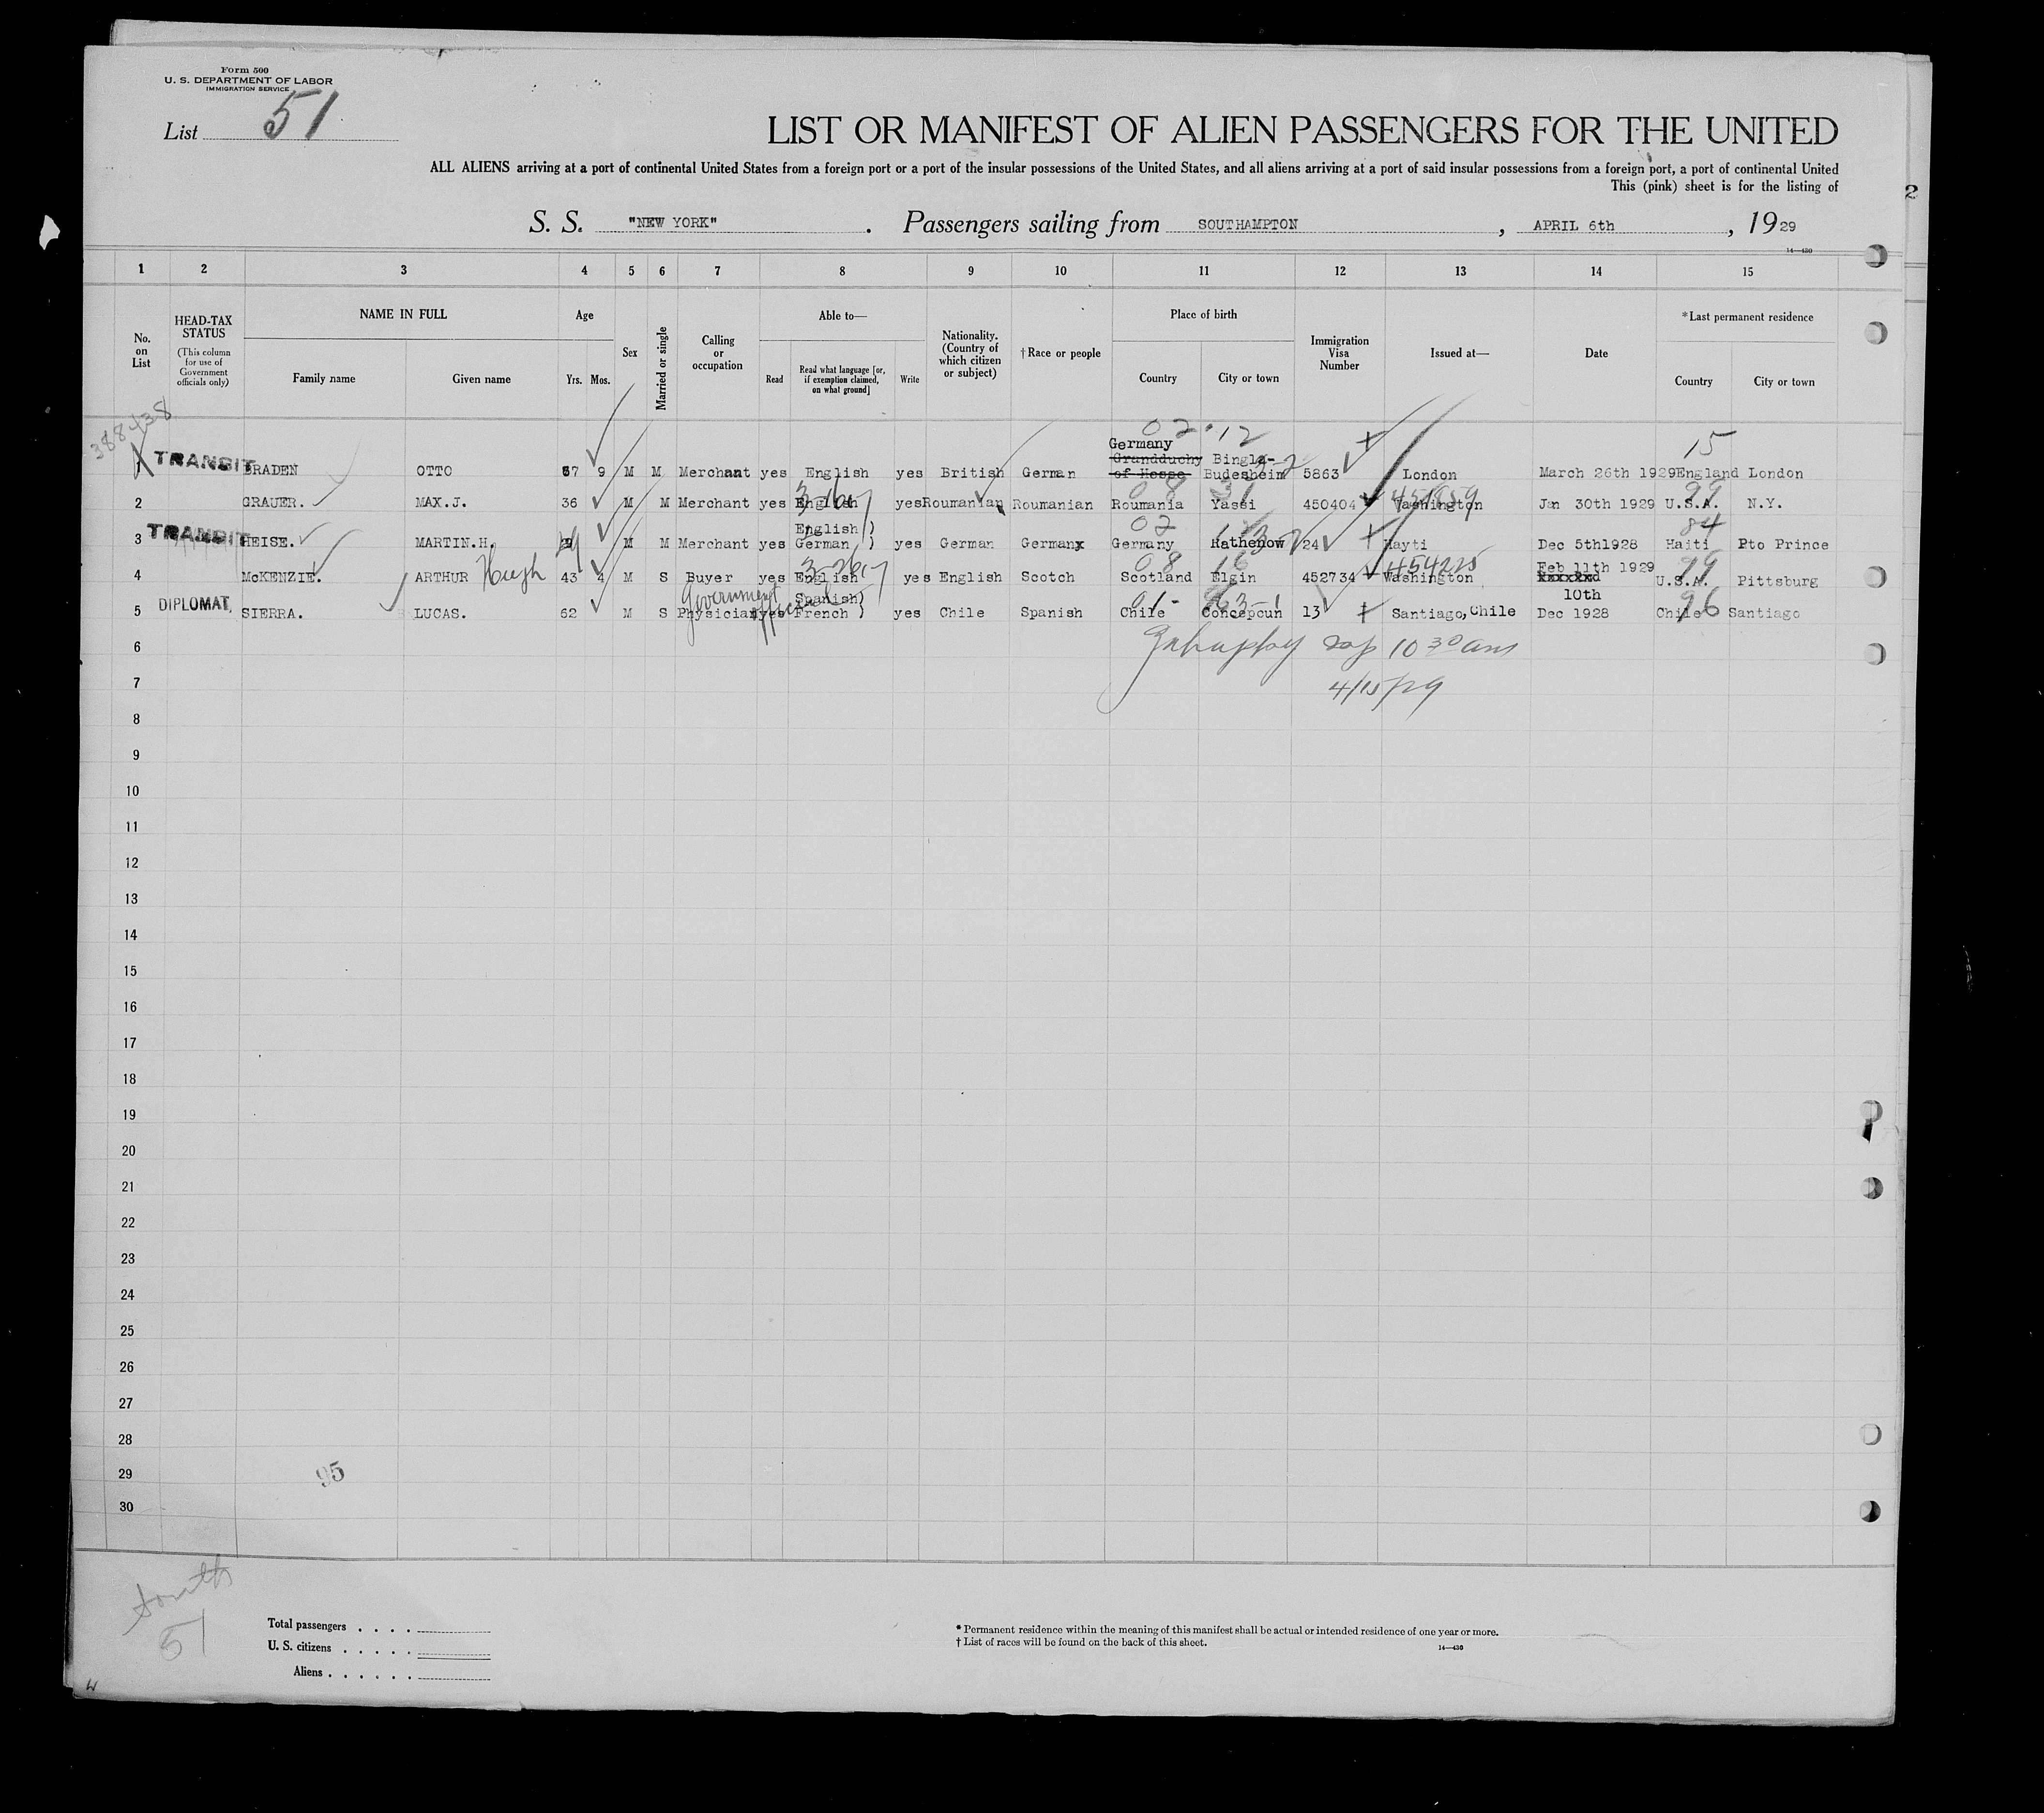 Form 500
U. S. DEPARTMENT OF LABOR
IMMIGRATION SERVICE
List 51
LIST OR MANIFEST OF ALIEN PASSENGERS FOR THE UNITED
ALL ALIENS arriving at a port of continental United States from a foreign port or a port of the insular possessions of the United States, and all aliens arriving at a port of said insular possessions from a foreign port, a port of continental United
This (pink) sheet is for the listing of
2
S. S. "NEW YORK" . Passengers sailing from SOUTHAMPTON , APRIL 6th , 19 29
14—430
1 2 3 4 5 6 7 8 9 10 11 12 13 14 15
No. on List
HEAD-TAX STATUS (This column for use of Government officials only)
NAME IN FULL
Family name
Given name
Age
Yrs. Mos.
Sex
Married or single
Calling or occupation
Able to—
Read
Read what language [or, if exemption claimed, on what ground]
Write
Nationality. (Country of which citizen or subject)
†Race or people
Place of birth
Country
City or town
Immigration Visa Number
Issued at—
Date
*Last permanent residence
Country
City or town
388438
02 12 15
Germany
1 TRANSIT BRADEN OTTO 57 9 M M Merchant yes English yes British German Grandduchy of Hesse Budesheim 5863 London March 26th 1929 England London
08 31 99
2 GRAUER. MAX.J. 36 M M Merchant yes English yes Roumanian Roumanian Roumania Yassi 450404 Washington Jan 30th 1929 U.S.A. N.Y.
02 84
3 TRANSIT HEISE. MARTIN.H. M M Merchant yes English ) German ) yes German German Germany Rathenow 24 Hayti Dec 5th1928 Haiti Pto Prince
08 16 99
4 McKENZIE. ARTHUR Hugh 43 4 M S Buyer yes English yes English Scotch Scotland Elgin 452734 Washington Feb 11th 1929 U.S.A. Pittsburg
Government 01- 96
5 DIPLOMAT. SIERRA. LUCAS. 62 M S Physician yes Spanish) French ) yes Chile Spanish Chile Concepcun 13 Santiago, Chile 10th Dec 1928 Chile Santiago
6 10 30 am
7 4/15/29
8
9
10
11
12
13
14
15
16
17
18
19
20
21
22
23
24
25
26
27
28
29 95
30
51
Total passengers . . . .
U. S. citizens . . . . .
Aliens . . . . . .
* Permanent residence within the meaning of this manifest shall be actual or intended residence of one year or more.
† List of races will be found on the back of this sheet.
14—430